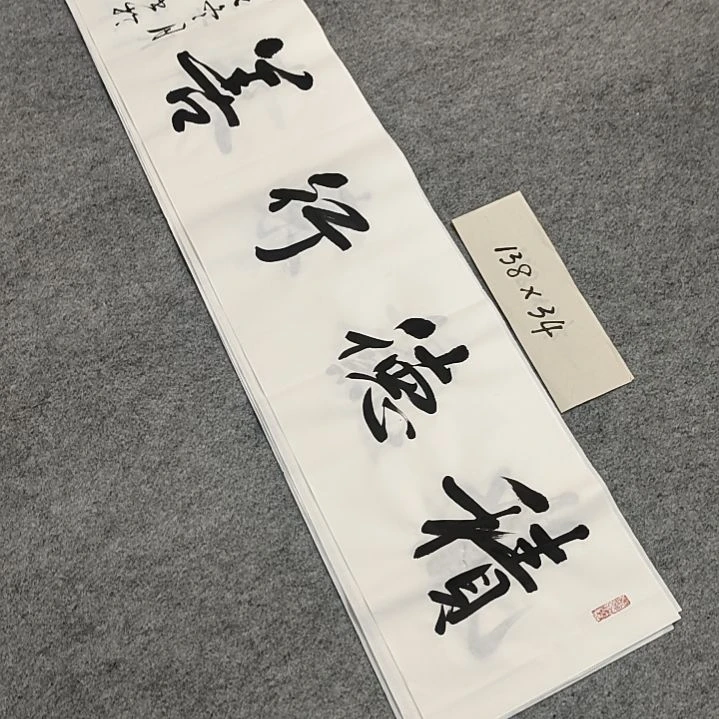 積德行善
138×34